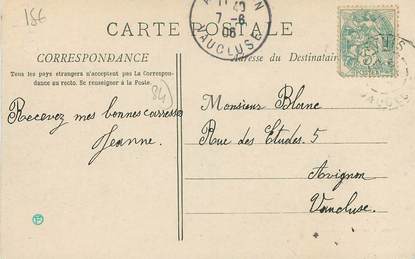 156
CARTE POSTALE
11 40
7-6
06
VAUCLUSE
CORRESPONDANCE
Adresse du Destinataire
Tous les pays étrangers n'acceptent pas la Correspon-
dance au recto. Se renseigner à la Poste.
84)
Recevez mes bonnes caresses
Jeanne.
Monsieur Blorne
Rue des Etudes. 5
Avignon
Vaucluse.